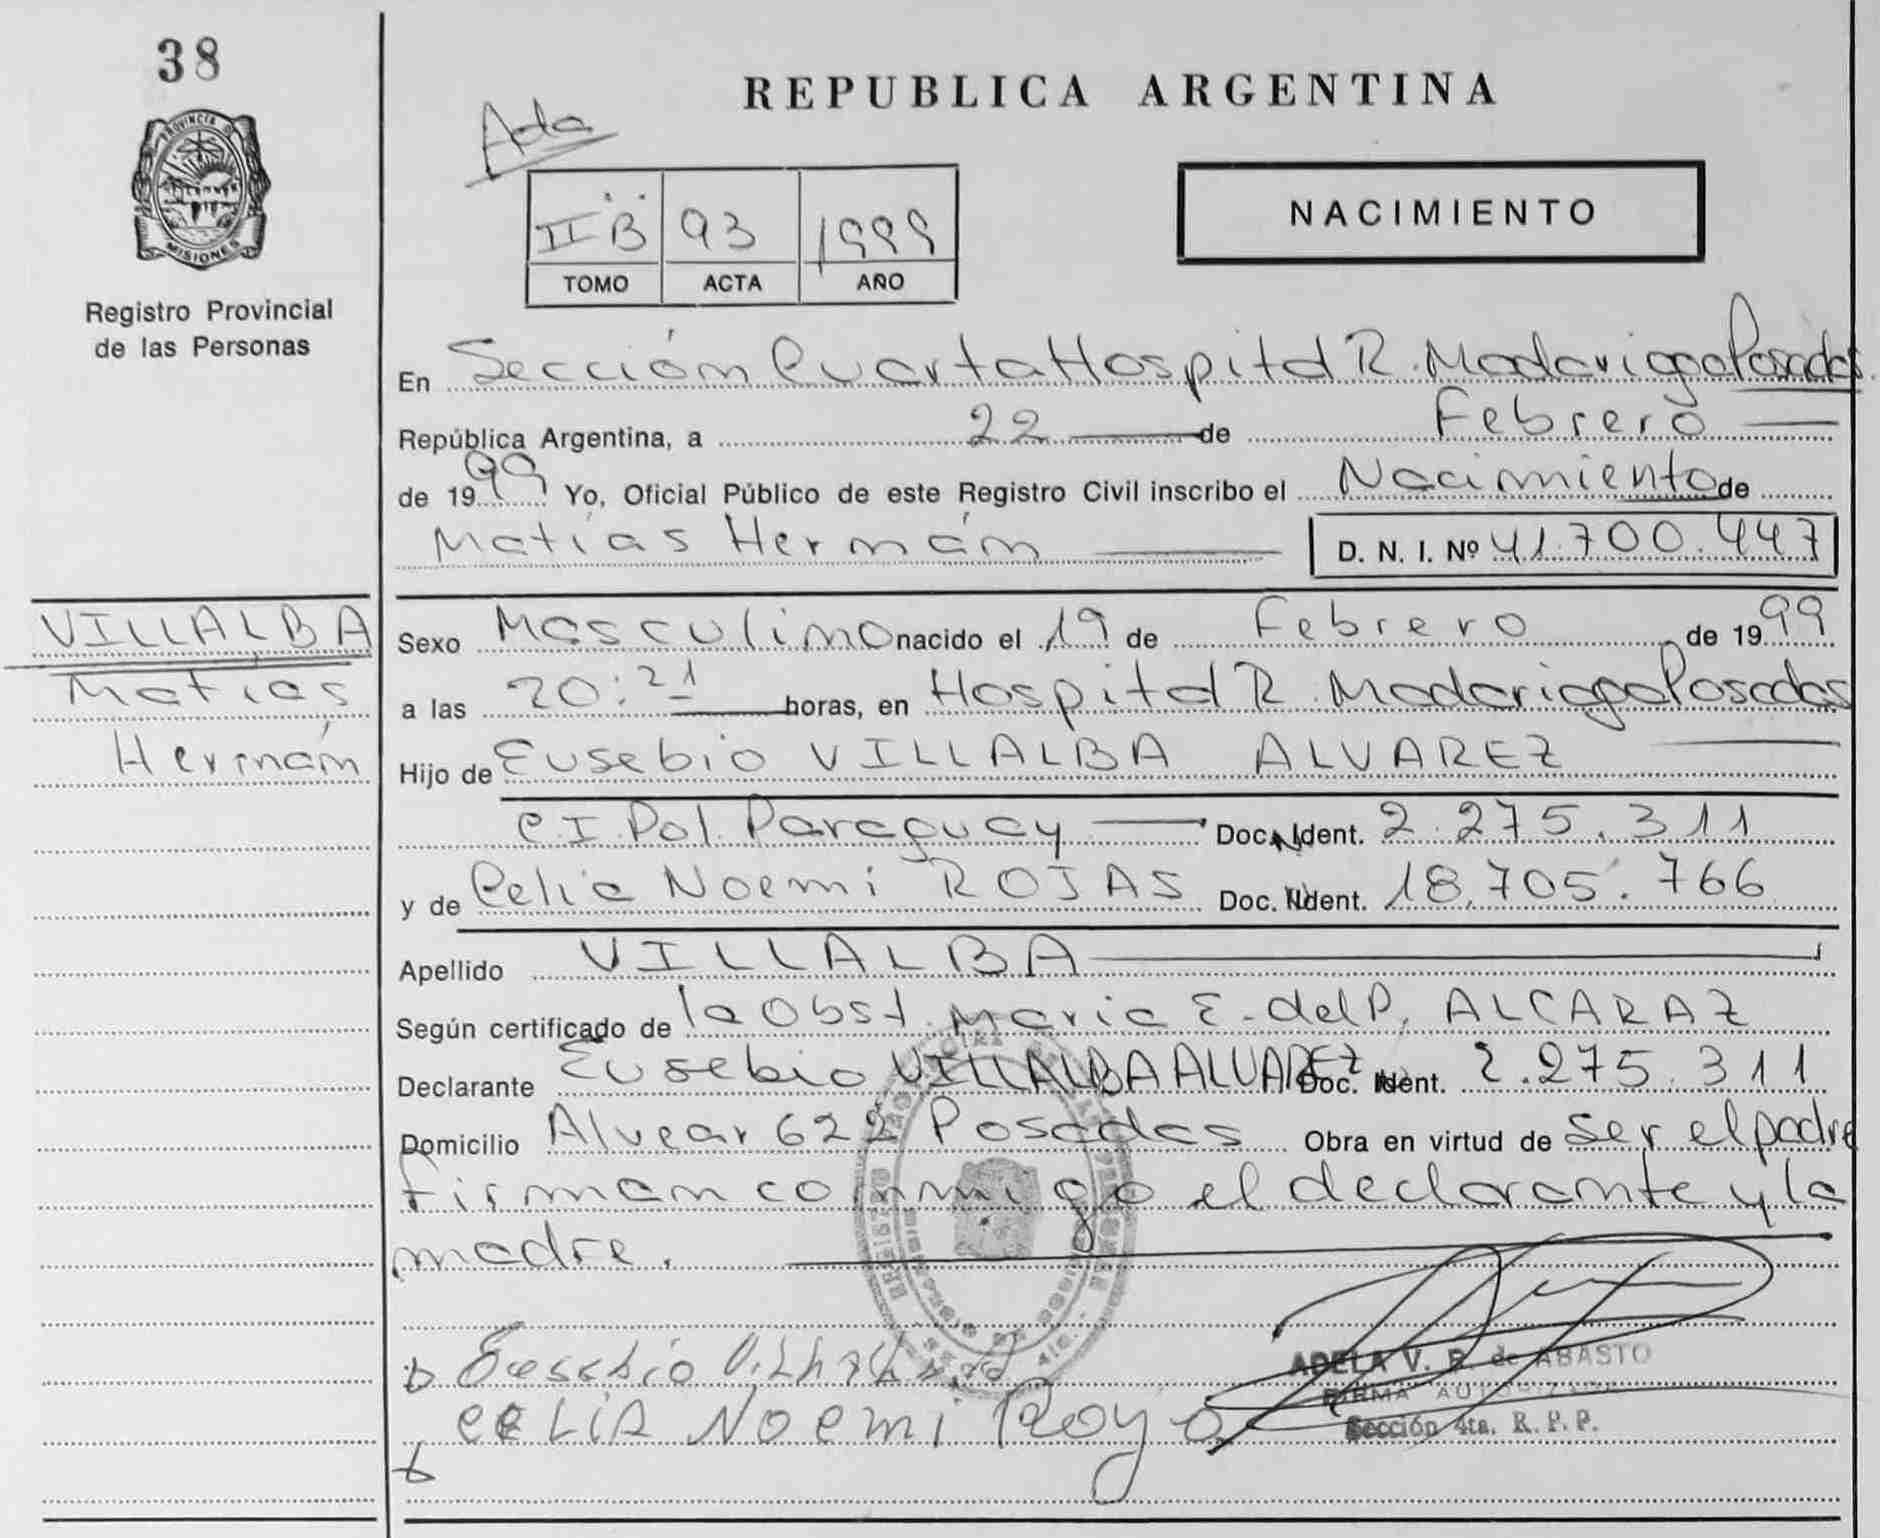 38
PROVINCIA D
MISIONES
Registro Provincial
de las Personas
REPUBLICA ARGENTINA
II B 93 1999
TOMO ACTA AÑO
NACIMIENTO
En Sección Cuarta Hospital R. Madariaga Posadas.
República Argentina, a 22 de Febrero
de 1999 Yo, Oficial Público de este Registro Civil inscribo el Nacimiento de
Matías Hernán D. N. I. Nº 41.700.447
VILLALBA
Matías
Hernán
Sexo Masculino nacido el 19 de Febrero de 1999
a las 20:21 horas, en Hospital R. Madariaga Posadas
Hijo de Eusebio VILLALBA ALVAREZ
C.I. Pol. Paraguay Doc. Ident. 2.275.311
y de Celia Noemi ROJAS Doc. Ident. 18.705.766
Apellido VILLALBA
Según certificado de la Obst. Maria E. del P. ALCARAZ
Declarante Eusebio VILLALBA ALVAREZ Doc. Ident. 2.275.311
Domicilio Alvear 622 Posadas Obra en virtud de ser el padre
firman conmigo el declarante y la
madre.
Eusebio
CELIA NOEMI
ADELA V. R. de ABASTO
FIRMA AUTORIZADA
Sección 4ta. R. P. P.